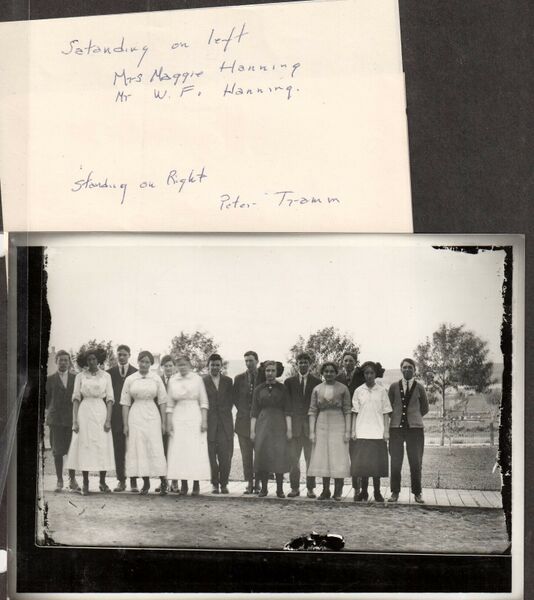 Satanding on left
Mrs Maggie Hanning
Mr W. F. Hanning.
Standing on Right
Peter Tramm